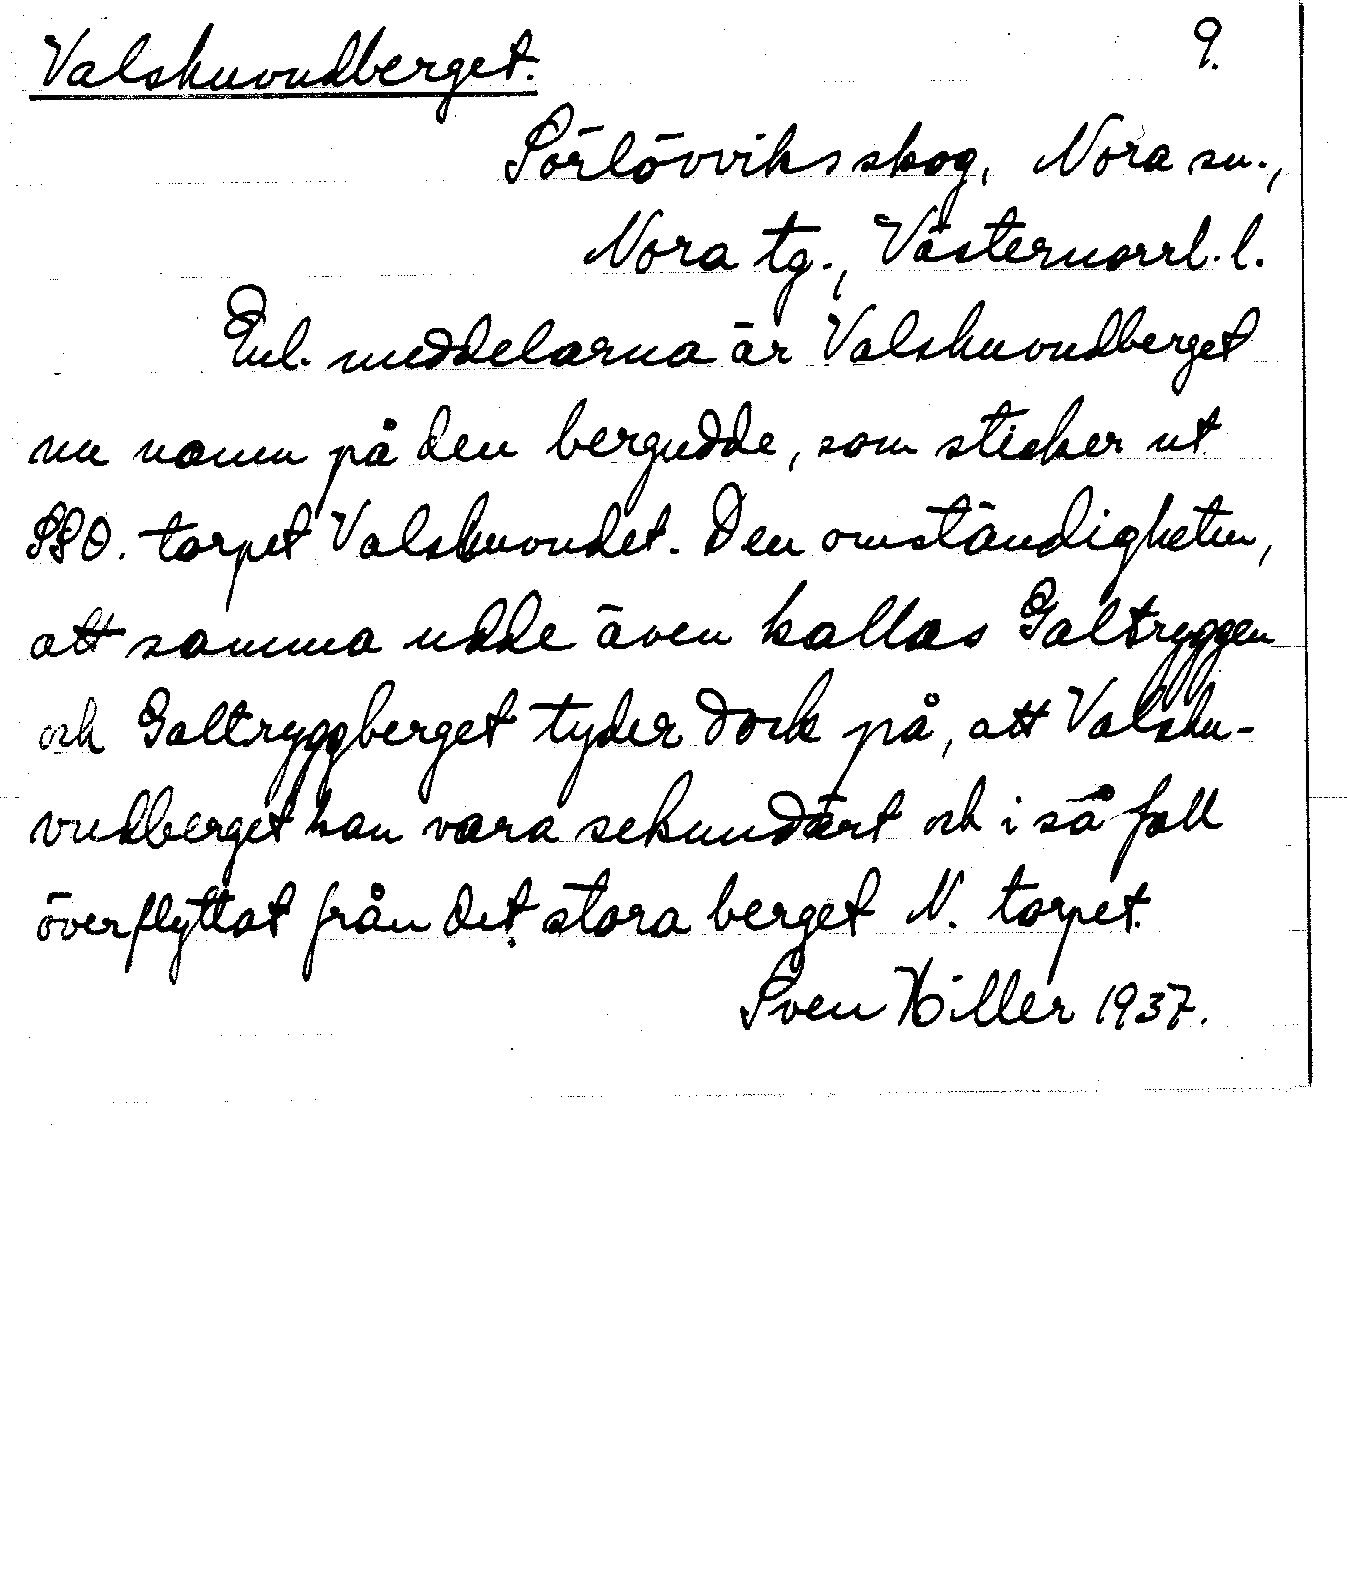 Valshuvudberget.
9.
Sörlövviksskog, Nora sn.,
Nora tg., Västernorrl. l.
Enl. meddelarna är Valshuvudberget
nu namn på den bergudde, som sticker ut
SSO. torpet Valshuvudet. Den omständigheten,
att samma udde även kallas Galtryggen
och Galtryggberget tyder dock på, att Valshu-
vudberget kan vara sekundärt och i så fall
överflyttat från det stora berget N. torpet.
Sven Hiller 1937.